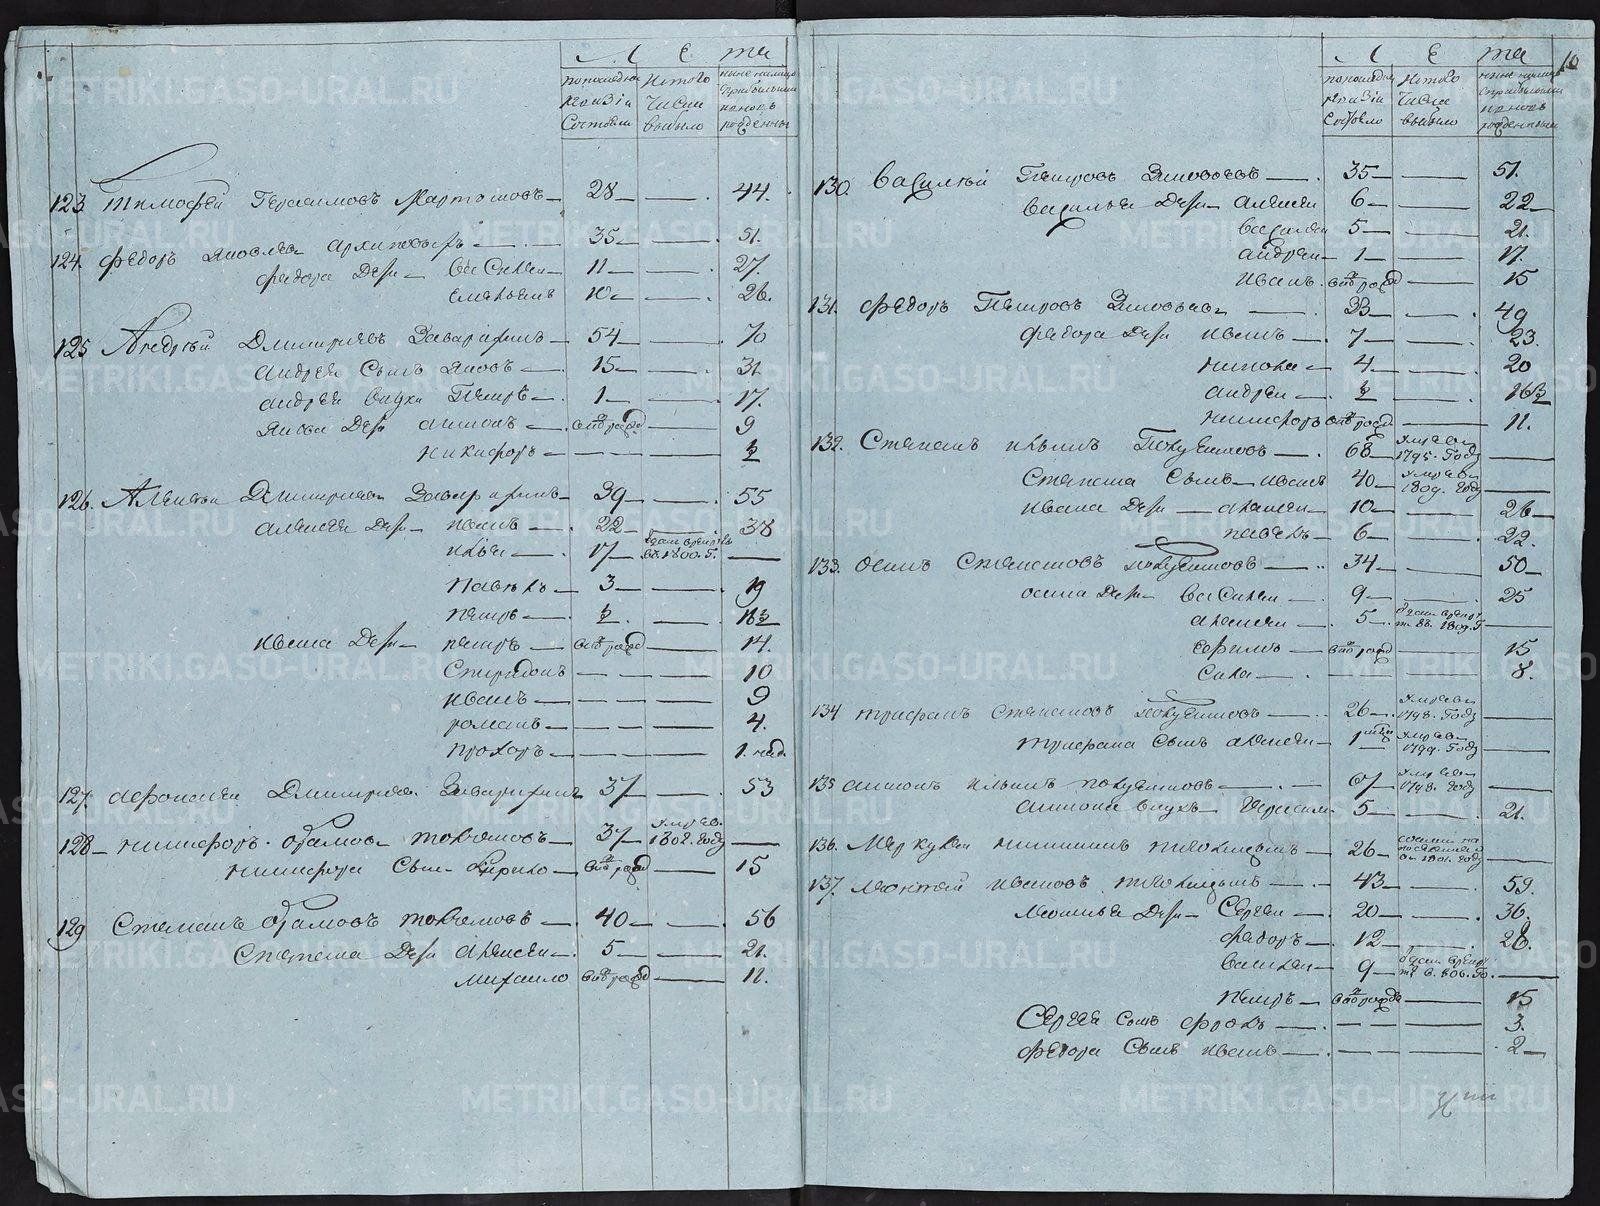 Л Е та
по последней Ревизiи Состояли
Изтого Числа выбыло
ныне налицо Сприбылыми и вновь рожденными
123. Тимофей Герасимовъ Мартюшовъ — 28 — — 44.
124. Федоръ Яковлевъ Архиповыхъ — 35 — — 51.
Федора Дети — Василей — 11 — — 27.
Емельянъ 10 — — 26.
125 Андрей Дмитриевъ Заварихинъ — 54 — — 70
андрея Сынъ Яковъ — 15 — — 31.
андрея внукъ Петръ — 1 — — 17.
Якова Дети антонъ — внов рожд — 9
никифоръ — — — ½
126. Алексей Дмитриевъ Завар ихинъ — 39 — — 55
алексея Дети — иванъ — 22 — — 38
илья — 17 — отдан врекруты въ 1800. г. —
Павелъ — 3 — — 19
петръ — ½ — 16½
ивана Дети — петръ — внов рожд — 14.
Спиридонъ — — — 10
иванъ — — — 9
романъ — — — 4.
прохоръ — — — 1. нед.
127. афонасей Дмитриевъ Заварихинъ 37 — — 53
128 — никифоръ абрамовъ товкачовъ — 37 — умре въ 1802. году —
никифора Сынъ Кирило — внов рожд — 15
129 Степанъ абрамовъ — 40 — — 56
Степана Дети алексей — 5 — — 21.
михаило внов рожд — 11.
Л Е та 10
по последней Ревизiи Состояло
Изтого Числа выбыло
ныне налицо Сприбылыми и вновь рожденными
130. Василей Петровъ Зиновьевъ — 35 — — 51.
василья Дети — алексей 6 — — 22 —
василей 5 — — 21.
андрей — 1 — — 17.
иванъ. внов рожд — 15
131. Федоръ Петровъ Зиновьевъ — 33 — — 49
Федора Дети иванъ — 7 — — 23.
никола — 4 — — 20
андрей — ½ — 16½
никифоръ внов рожд — 11.
132. Степанъ ильинъ — 68 — умре въ 1795. году —
Степана Сынъ — иванъ 40 — умре въ 1809. году —
ивана Дети — алексей — 10 — — 26 —
павелъ — 6 — — 22.
133. осипъ Степановъ — 34 — — 50 —
осипа Дети — василей — 9 — — 25
алексей — 5 — отдан врекруты въ 1809. г —
ефимъ — внов рожд — 15
Сава — — — 8.
134 трифанъ Степановъ — 26 — умре въ 1798. году —
трифана Сынъ алексей — 1 — умре въ 1799. году —
135 антонъ ильинъ — 67 — умре въ 1798. году —
антона внукъ — Герасимъ 5 — — 21.
136. Меркулей никитинъ — 26 — сослан на поселение в 1801. году —
137. леонтей ивановъ — 43 — — 59.
леонтья Дети — Сергей — 20 — — 36.
Федоръ — 12 — — 28.
василей — 9 — отдан врекруты в. 806. го. —
петръ — внов рожд — 15
Сергея Сынъ фролъ — — — 3.
Федора Сынъ иванъ — — — 2 —